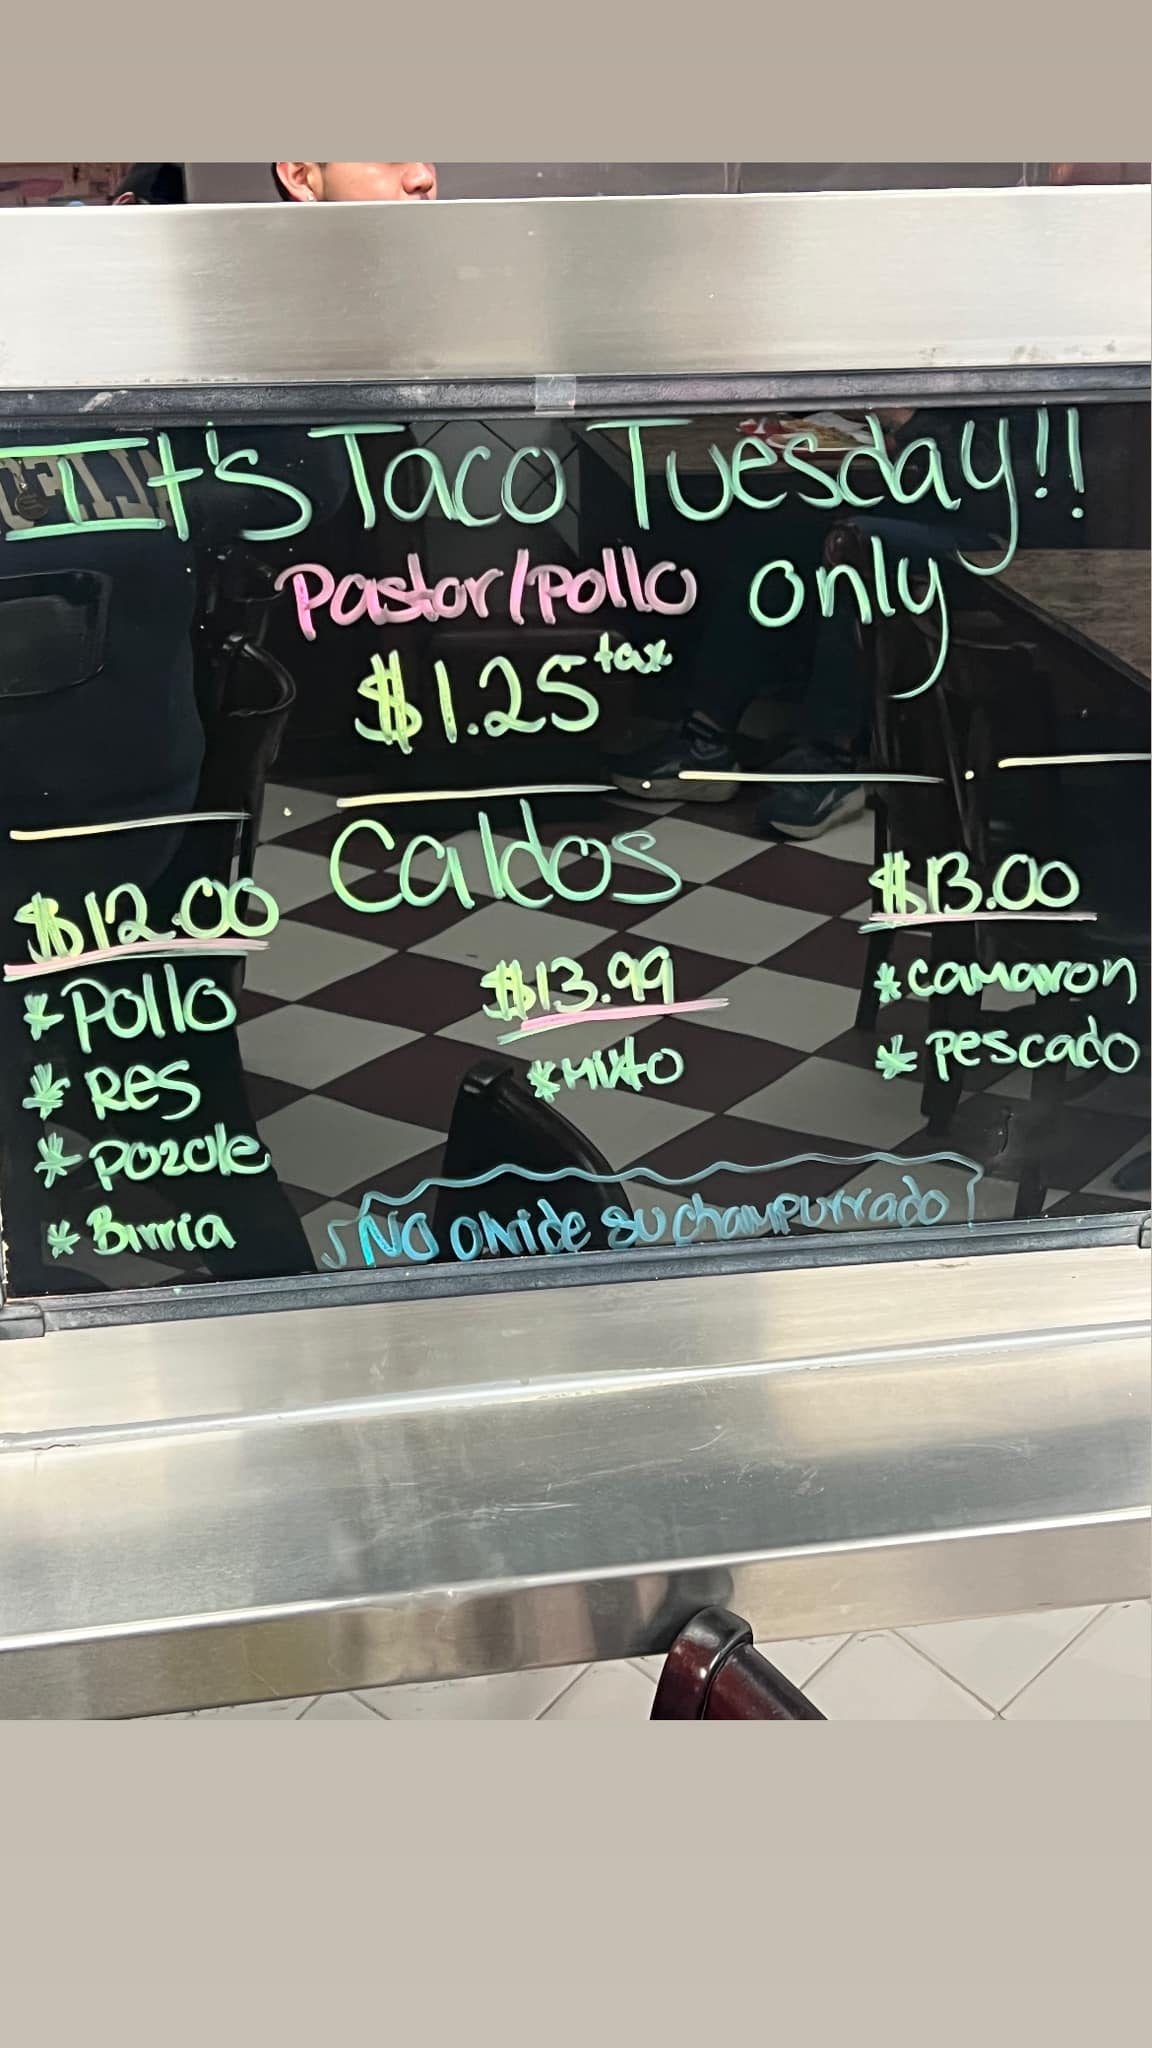 It's Taco Tuesday!!
Pastor/Pollo only
$1.25 tax
Caldos
$12.00
*Pollo
* RES
* Pozole
* Birria
$13.99
*Mixto
$13.00
*Camaron
* Pescado
No olvide su champurrado